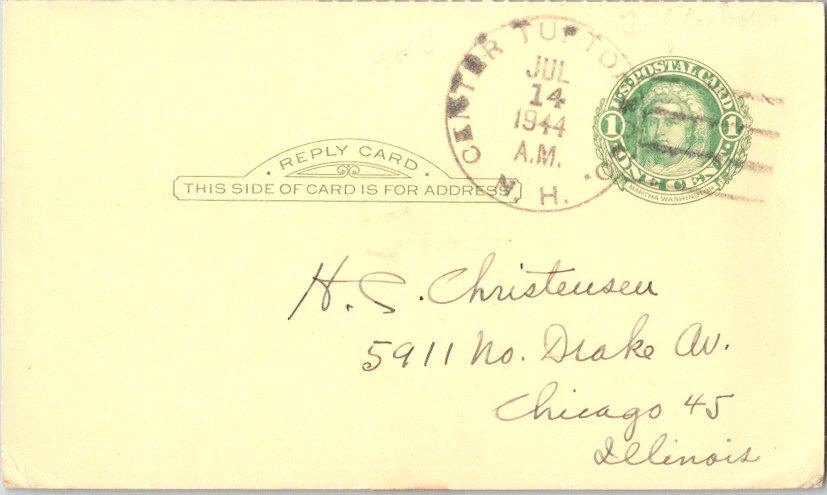 CENTER TUFTON
JUL
14
1944
A.M.
N. H.
U.S. POSTAL CARD
1 1
ONE CENT
MARTHA WASHINGTON
· REPLY CARD ·
THIS SIDE OF CARD IS FOR ADDRESS
H. C. Christensen
5911 No. Drake Av.
Chicago 45
Illinois